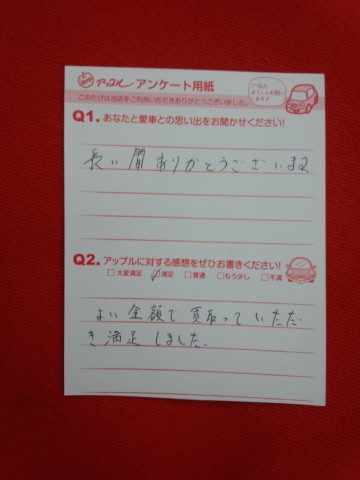 アップル アンケート用紙
このたびは当店をご利用いただきありがとうございました。
Q1. あなたと愛車との思い出をお聞かせください!
長い間ありがとうございます
Q2. アップルに対する感想をぜひお書きください!
□大変満足 ☑満足 □普通 □もう少し □不満
よい金額で買取っていただ
き満足しました.